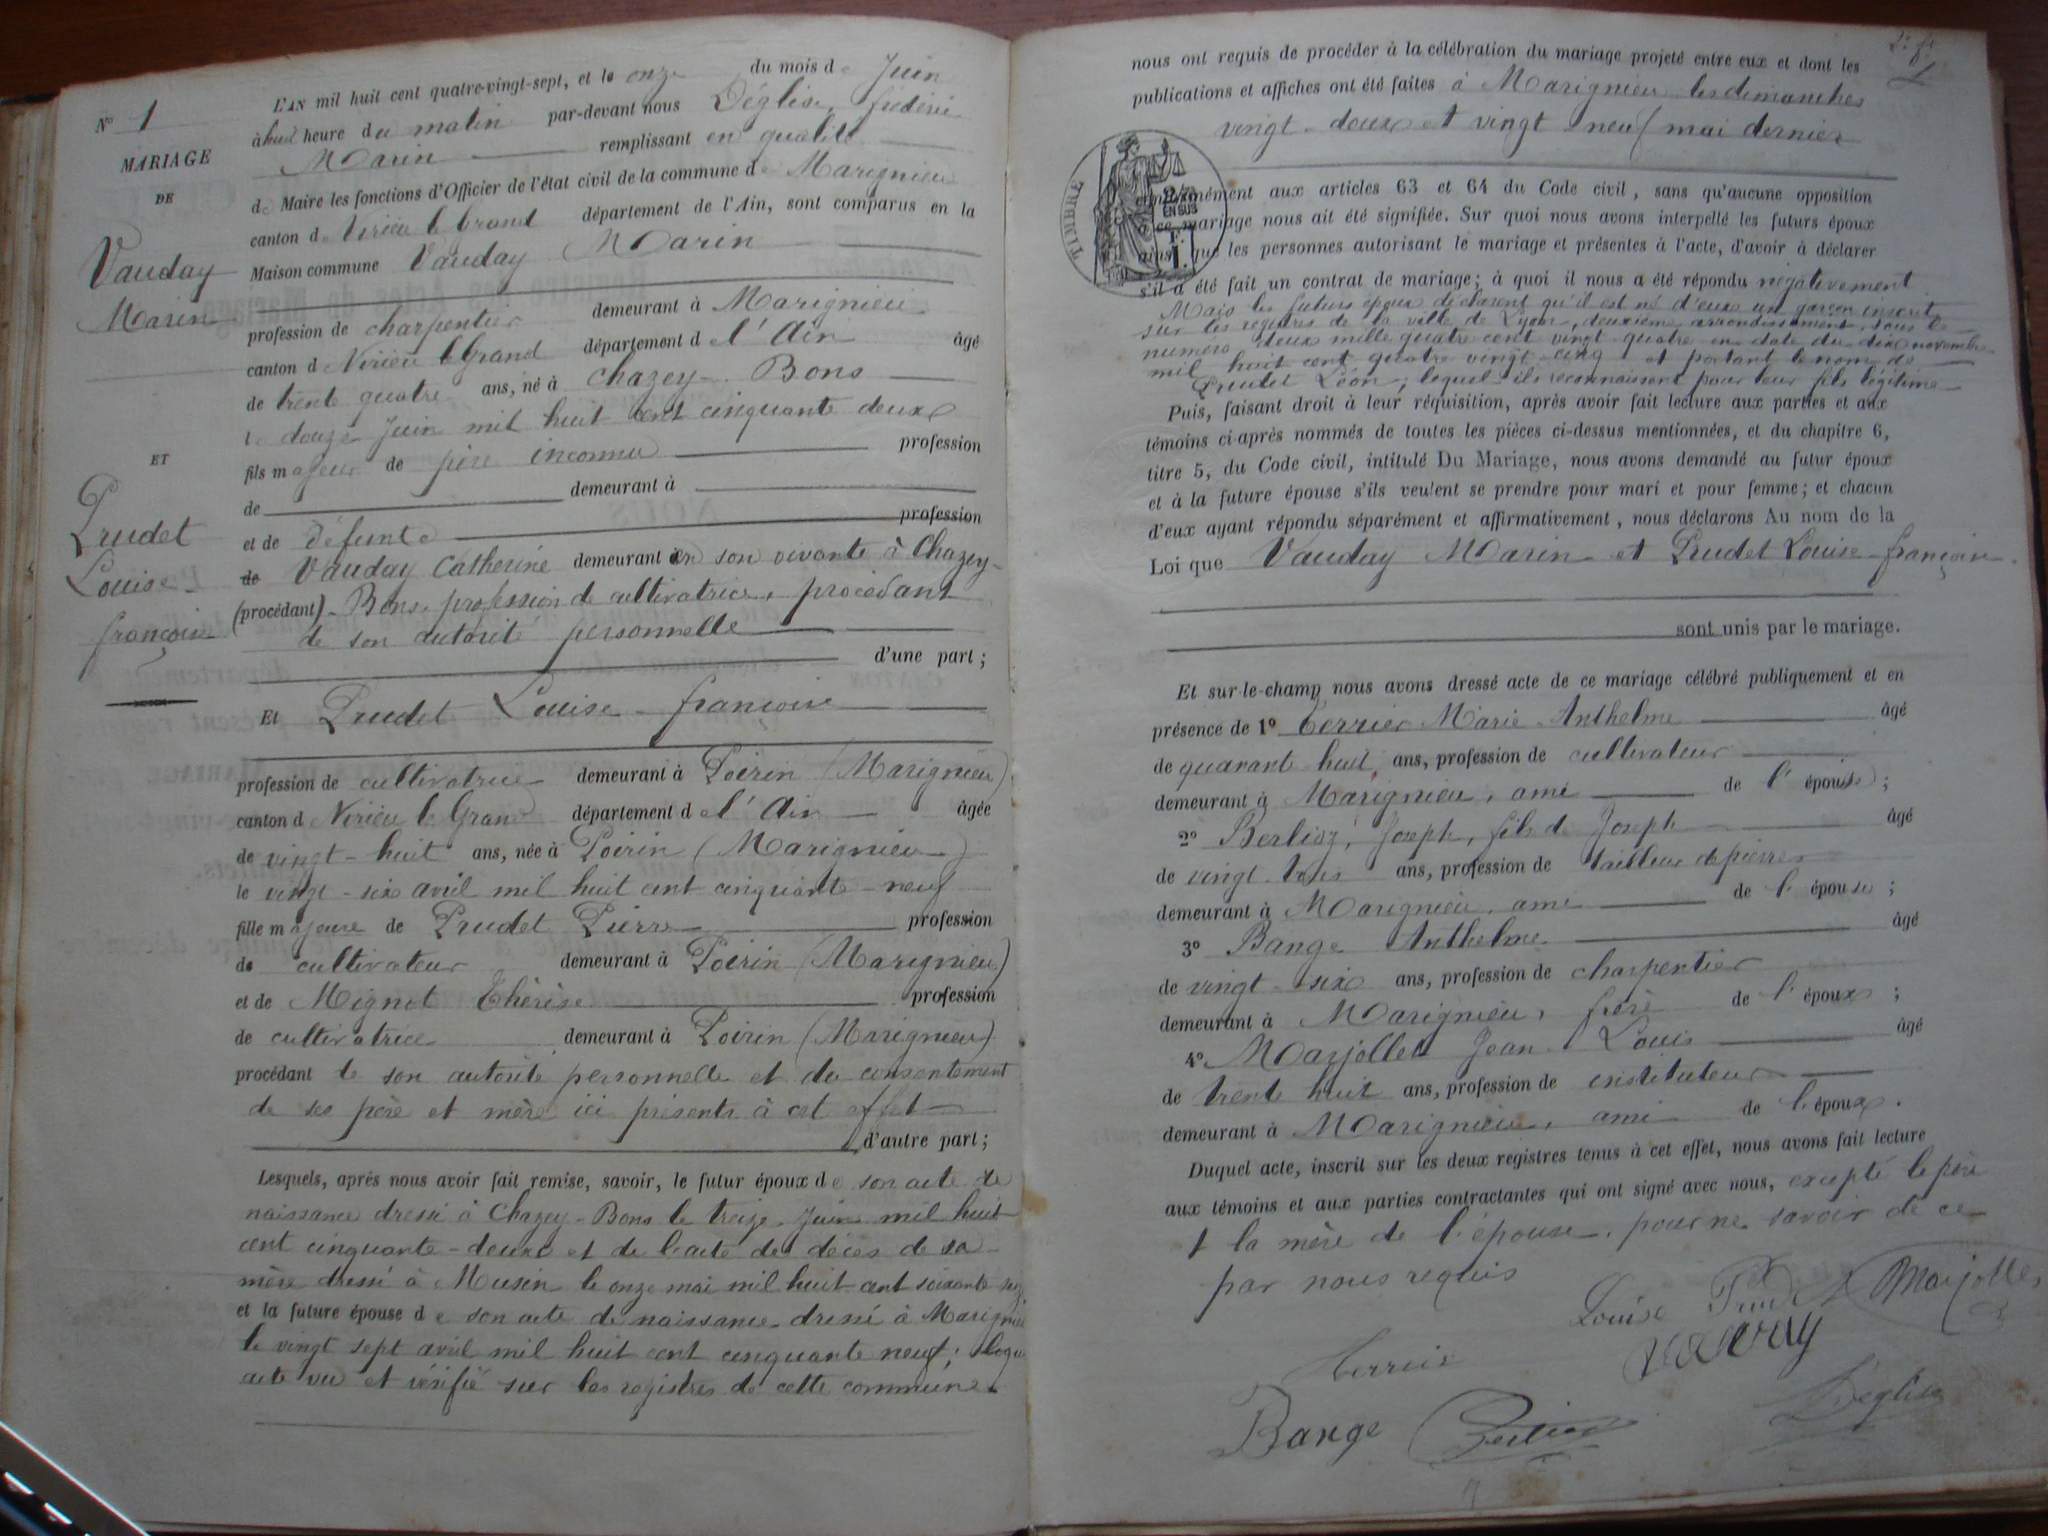 N° 1
MARIAGE
DE
Vauday
Marin
ET
Prudet
Louise
françoise
L'AN mil huit cent quatre-vingt-sept, et le onze du mois de Juin
à huit heure du matin par-devant nous Déglise, frédéric
Marin remplissant en qualité
de Maire les fonctions d'Officier de l'état civil de la commune de Marignieu
canton de Virieu le Grand département de l'Ain, sont comparus en la
Maison commune Vauday Marin
profession de charpentier demeurant à Marignieu
canton d Virieu le Grand département d e l'Ain âgé
de trente quatre ans, né à Chazey-Bons
le douze Juin mil huit cent cinquante deux
fils majeur de père inconnu profession
de demeurant à
et de défunte profession
de Vauday Catherine demeurant en son vivante à Chazey-
(procédant) Bons, profession de cultivatrice, procédant
de son autorité personnelle
d'une part;
Et Prudet Louise françoise
profession de cultivatrice demeurant à Poirin (Marignieu)
canton d Virieu le Grand département d e l'Ain âgée
de vingt-huit ans, née à Poirin (Marignieu)
le vingt-six avril mil huit cent cinquante-neuf
fille majeure de Prudet Pierre profession
de cultivateur demeurant à Poirin (Marignieu)
et de Mignot Thérèse profession
de cultivatrice demeurant à Poirin (Marignieu)
procédant de son autorité personnelle et du consentement
de ses père et mère ici présents à cet effet
d'autre part;
Lesquels, après nous avoir fait remise, savoir, le futur époux de son acte de
naissance dressé à Chazey-Bons le treize Juin mil huit
cent cinquante-deux et de l'acte de décès de sa
mère dressé à Musin le onze mai mil huit cent soixante
et la future épouse d e son acte de naissance dressé à Marignieu
le vingt sept avril mil huit cent cinquante neuf;
acte vu et vérifié sur les registres de cette commune.
nous ont requis de procéder à la célébration du mariage projeté entre eux et dont les
publications et affiches ont été faites à Marignieu les dimanches
vingt-deux et vingt-neuf mai dernier
TIMBRE
2/10
EN SUS
F.
1.
conformément aux articles 63 et 64 du Code civil, sans qu'aucune opposition
à ce mariage nous ait été signifiée. Sur quoi nous avons interpellé les futurs époux
ainsi que les personnes autorisant le mariage et présentes à l'acte, d'avoir à déclarer
s'il a été fait un contrat de mariage; à quoi il nous a été répondu négativement.
Mais les futurs époux déclarent qu'il est né d'eux un garçon inscrit
sur les registres de la ville de Lyon, deuxième arrondissement, sous le
numéro deux mille quatre cent vingt quatre en date du dix novembre
mil huit cent quatre vingt cinq et portant le nom de
Prudet Léon; lequel ils reconnaissent pour leur fils légitime
Puis, faisant droit à leur réquisition, après avoir fait lecture aux parties et aux
témoins ci-après nommés de toutes les pièces ci-dessus mentionnées, et du chapitre 6,
titre 5, du Code civil, intitulé Du Mariage, nous avons demandé au futur époux
et à la future épouse s'ils veulent se prendre pour mari et pour femme; et chacun
d'eux ayant répondu séparément et affirmativement, nous déclarons Au nom de la
Loi que Vauday Marin et Prudet Louise françoise
sont unis par le mariage.
Et sur-le-champ nous avons dressé acte de ce mariage célébré publiquement et en
présence de 1° Terrier Marie Anthelme âgé
de quarant huit ans, profession de cultivateur
demeurant à Marignieu, ami de l'épouse;
2° Berlioz, Joseph, fils de Joseph âgé
de vingt-trois ans, profession de tailleur de pierres
demeurant à Marignieu, ami de l'épouse;
3° Bange Anthelme âgé
de vingt-six ans, profession de charpentier
demeurant à Marignieu, frère de l'époux;
4° Marjollet Jean Louis âgé
de trente huit ans, profession de instituteur
demeurant à Marignieu, ami de l'époux.
Duquel acte, inscrit sur les deux registres tenus à cet effet, nous avons fait lecture
aux témoins et aux parties contractantes qui ont signé avec nous, excepté le père
et la mère de l'épouse, pour ne savoir de ce
par nous requis
Louise Prudet Marjollet
Terrier Vauday
Bange Berlioz Déglise